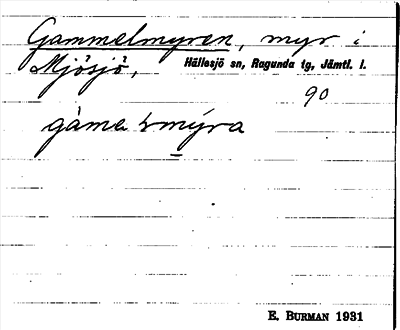 Gammelmyren, myr i
Mjösjö, Hällesjö sn, Ragunda tg, Jämtl. l.
90
E. BURMAN 1931